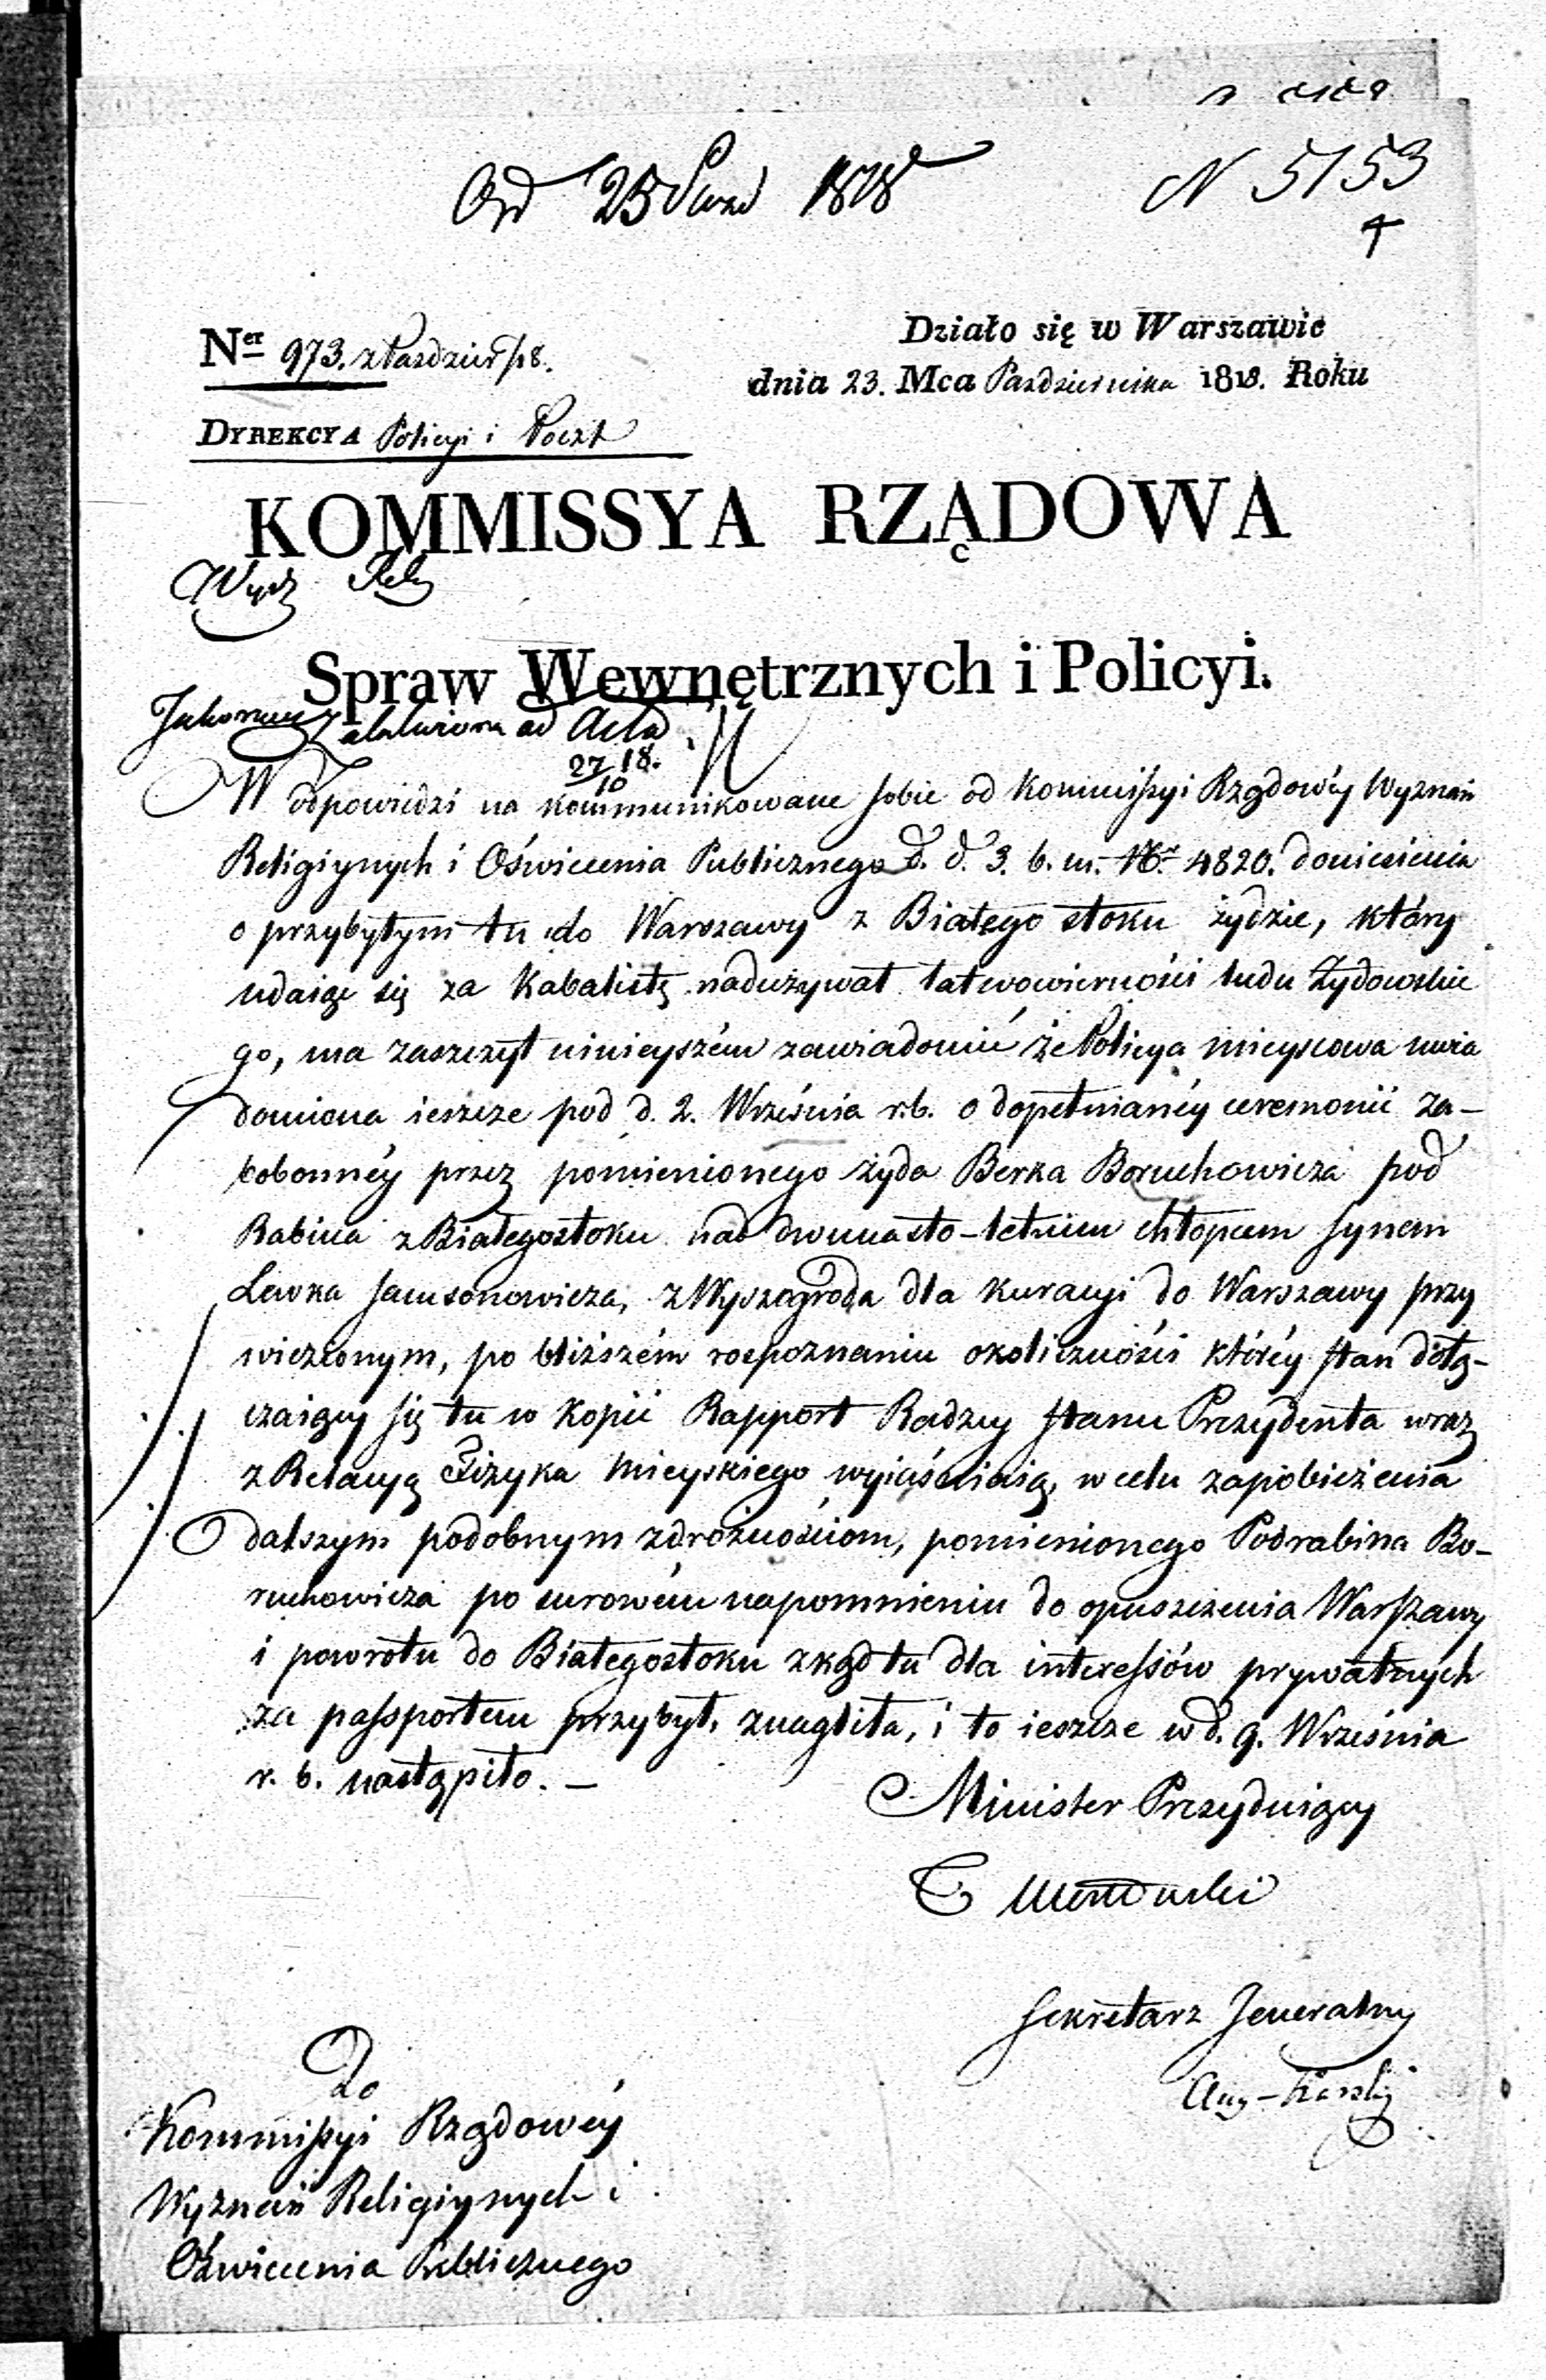 Od 25 Pazd 1818
N 5153
4
Ner 973. z Pazdzier /18.
Działo się w Warszawie
dnia 23. Mca Pazdziernika 1818. Roku
DYREKCYA Policyi i Poczt
KOMMISSYA RZĄDOWA
Wydz Relig
Spraw Wewnętrznych i Policyi.
ad Acta
27/10 18.
W odpowiedzi na kommunikowane sobie od Kommissyi Rządowéy Wyznań
Religiynych i Oświecenia Publicznego d. d. 3. b. m. Nr 4820. doniesienia
o przybyłym tu do Warszawy z Białego stoku żydzie, który
udaiąc się za Kabalistę nadużywał łatwowierności ludu Żydowskie
go, ma zaszczyt ninieyszém zawiadomić że Policya mieyscowa uwia
domiona ieszcze pod d. 2. Września r. b. o dopełnianéy ceremonii za-
bobonnéy przez pomienionego żyda Berka Boruchowicza pod
Rabina z Białegostoku nad dwunasto-letnim chłopcem synem
Lewka Samsonowicza, z Wyszogroda dla kuracyi do Warszawy przy
wiezionym, po bliższém rozpoznaniu okoliczności któréy stan dołą-
czaiący się tu w kopii Rapport Radzcy Stanu Prezydenta wraz
z Relacyą Fizyka Mieyskiego wyiaśniaią, w celu zapobieżenia
dalszym podobnym zdrożnościom, pomienionego Podrabina Bo-
ruchowicza po surowém napomnieniu do opuszczenia Warszawy
i powrotu do Białegostoku zkąd tu dla interessów prywatnych
za passportem przybył, znagliła, i to ieszcze w d. 9. Września
r. b. nastąpiło. —
Minister Prezyduiący
T Mostowski
Sekretarz Jeneralny
Aug. Karski
Do
Kommissyi Rządowéy
Wyznań Religiynych i
Oświecenia Publicznego